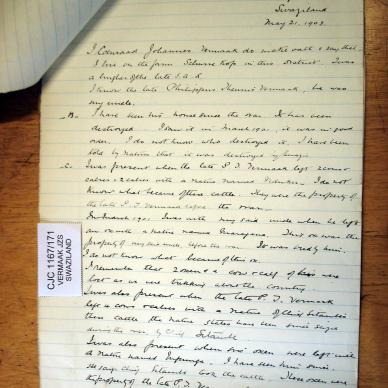 Swaziland
May 21. 1903.
I Coenraad Johannes Vermaak do make oath & say that
I live on the farm in this District. I was
a burgher of the late S.A.R.
I know the late Philippus Vermaak, he was
my uncle.
B. I have seen his house since the war. It has been
destroyed. I saw it in March 1901, it was in good
order. I do not know who destroyed it, I have been
told by natives that it was destroyed by
C. I was present when the late P. J. Vermaak left 2 cows
calves & 2 calves with a native named I do not
know what became of these cattle. They were the property of
the late P. J. Vermaak before the war.
In March 1901 I was with my said uncle when he left
an ox with a native named This ox was the
property of my said uncle before the war. It was bred by him.
I do not know what became of this ox.
I remember that 2 oxen & a cow & calf of his were
lost as we were trekking about the country.
I was also present when the late P. J. Vermaak
left cows & calves with a native of Chief
these cattle the native states has been since seized
during the war by Chief
I was also present when oxen were left with
a native named I have seen him since.
he says Chief took the cattle. These oxen were
the property of the late P. J.
CJC 1167/171
VERMAAK JZS
SWAZILAND